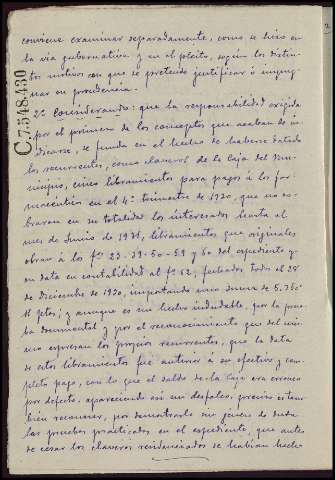 conviene examinar separadamente, como se hizo en
la via gubernativa y en el pleito, según los distin-
tos motivos con que se pretende justificar é impug-
nar su procedencia.
2º Considerando: que la responsabilidad exigida
por el primero de los conceptos que acaban de in-
dicarse, se funda en el hecho de haberse datado
los recurrentes, como claveros de la Caja del Mu-
nicipio, cinco libramientos para pagos á los far-
macéuticos en el 4º trimestre de 1930, que no co-
braron en su totalidad los interesados hasta el
mes de Junio de 1931, libramientos que originales
obran á los fº 29-39-50-59 y 60 del expediente y
su data en contabilidad al fº 62, fechados todos el 28
de Diciembre de 1930, importando una suma de 5.360
ptas; y aunque es un hecho indudable, por la prue-
ba documental y por el reconocimiento que del mis-
mo expresan los propios recurrentes, que la data
de estos libramientos fue anterior á su efectivo y com-
pleto pago, con lo que el saldo de la Caja era erroneo
por defecto, apareciendo asi un desfalco, preciso es tam-
bién reconocer, por demostrarlo sin género de duda
las pruebas practicadas en el expediente, que antes
de cesar los claveros residenciados se habían hecho
C.7.548.430